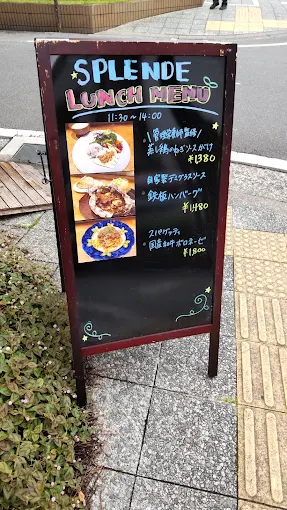 SPLENDE
LUNCH MENU
11:30～14:00
\管理栄養士監修/
蒸し鶏のねぎソースがけ
¥1380
自家製デミグラスソース
鉄板ハンバーグ
¥1,480
スパゲッティ
国産和牛ボロネーゼ
¥1,800